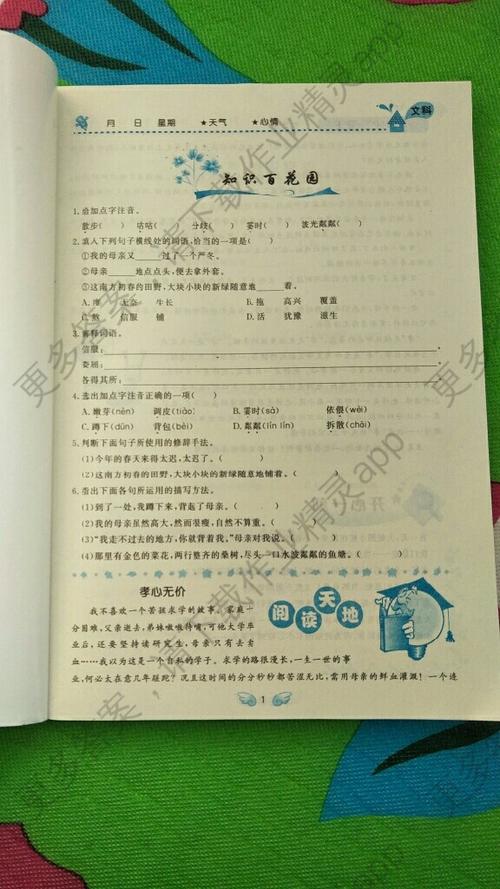 月 日 星期 ★天气 ★心情
文科
知识百花园
1.给加点字注音。
散步( ) 咕咕( ) 分歧( ) 霎时( ) 波光粼粼( )
2.填入下列句子横线处的词语，恰当的一项是( )
①我的母亲又 过了一个严冬。
②母亲 地点点头，便去拿外套。
③这南方初春的田野，大块小块的新绿随意地 着。
A.度 无奈 生长 B.拖 高兴 覆盖
C.熬 信服 铺 D.活 犹豫 滋生
3.解释词语。
信服：
委屈：
各得其所：
4.选出加点字注音正确的一项( )
A.嫩芽(nèn) 调皮(tiào) B.霎时(sà) 依偎(wèi)
C.蹲下(dūn) 背包(bèi) D.粼粼(lín lín) 拆散(chāi)
5.判断下面句子所使用的修辞手法。
(1)今年的春天来得太迟，太迟了。( )
(2)这南方初春的田野，大块小块的新绿随意地铺着。( )
6.指出下面各句所运用的描写方法。
(1)到了一处，我蹲下来，背起了母亲。( )
(2)我的母亲虽然高大，然而很瘦，自然不算重。( )
(3)“我走不过去的地方，你就背着我。”母亲对我说。( )
(4)那里有金色的菜花，两行整齐的桑树，尽头一口水波粼粼的鱼塘。( )
孝心无价
阅读天地
我不喜欢一个苦孩求学的故事。家庭一
分困难，父亲逝去，弟妹嗷嗷待哺，可他大学毕
业后，还要坚持读研究生，母亲只有去卖
血……我以为这是一个自私的学子。求学的路很漫长，一生一世的事
业，何必太在意几年蹉跎？况且这时间的分分秒秒都苦涩无比，需用母亲的鲜血灌溉！一个连
1
更多答案，请下载作业精灵app
更多答案，请下载作业精灵app